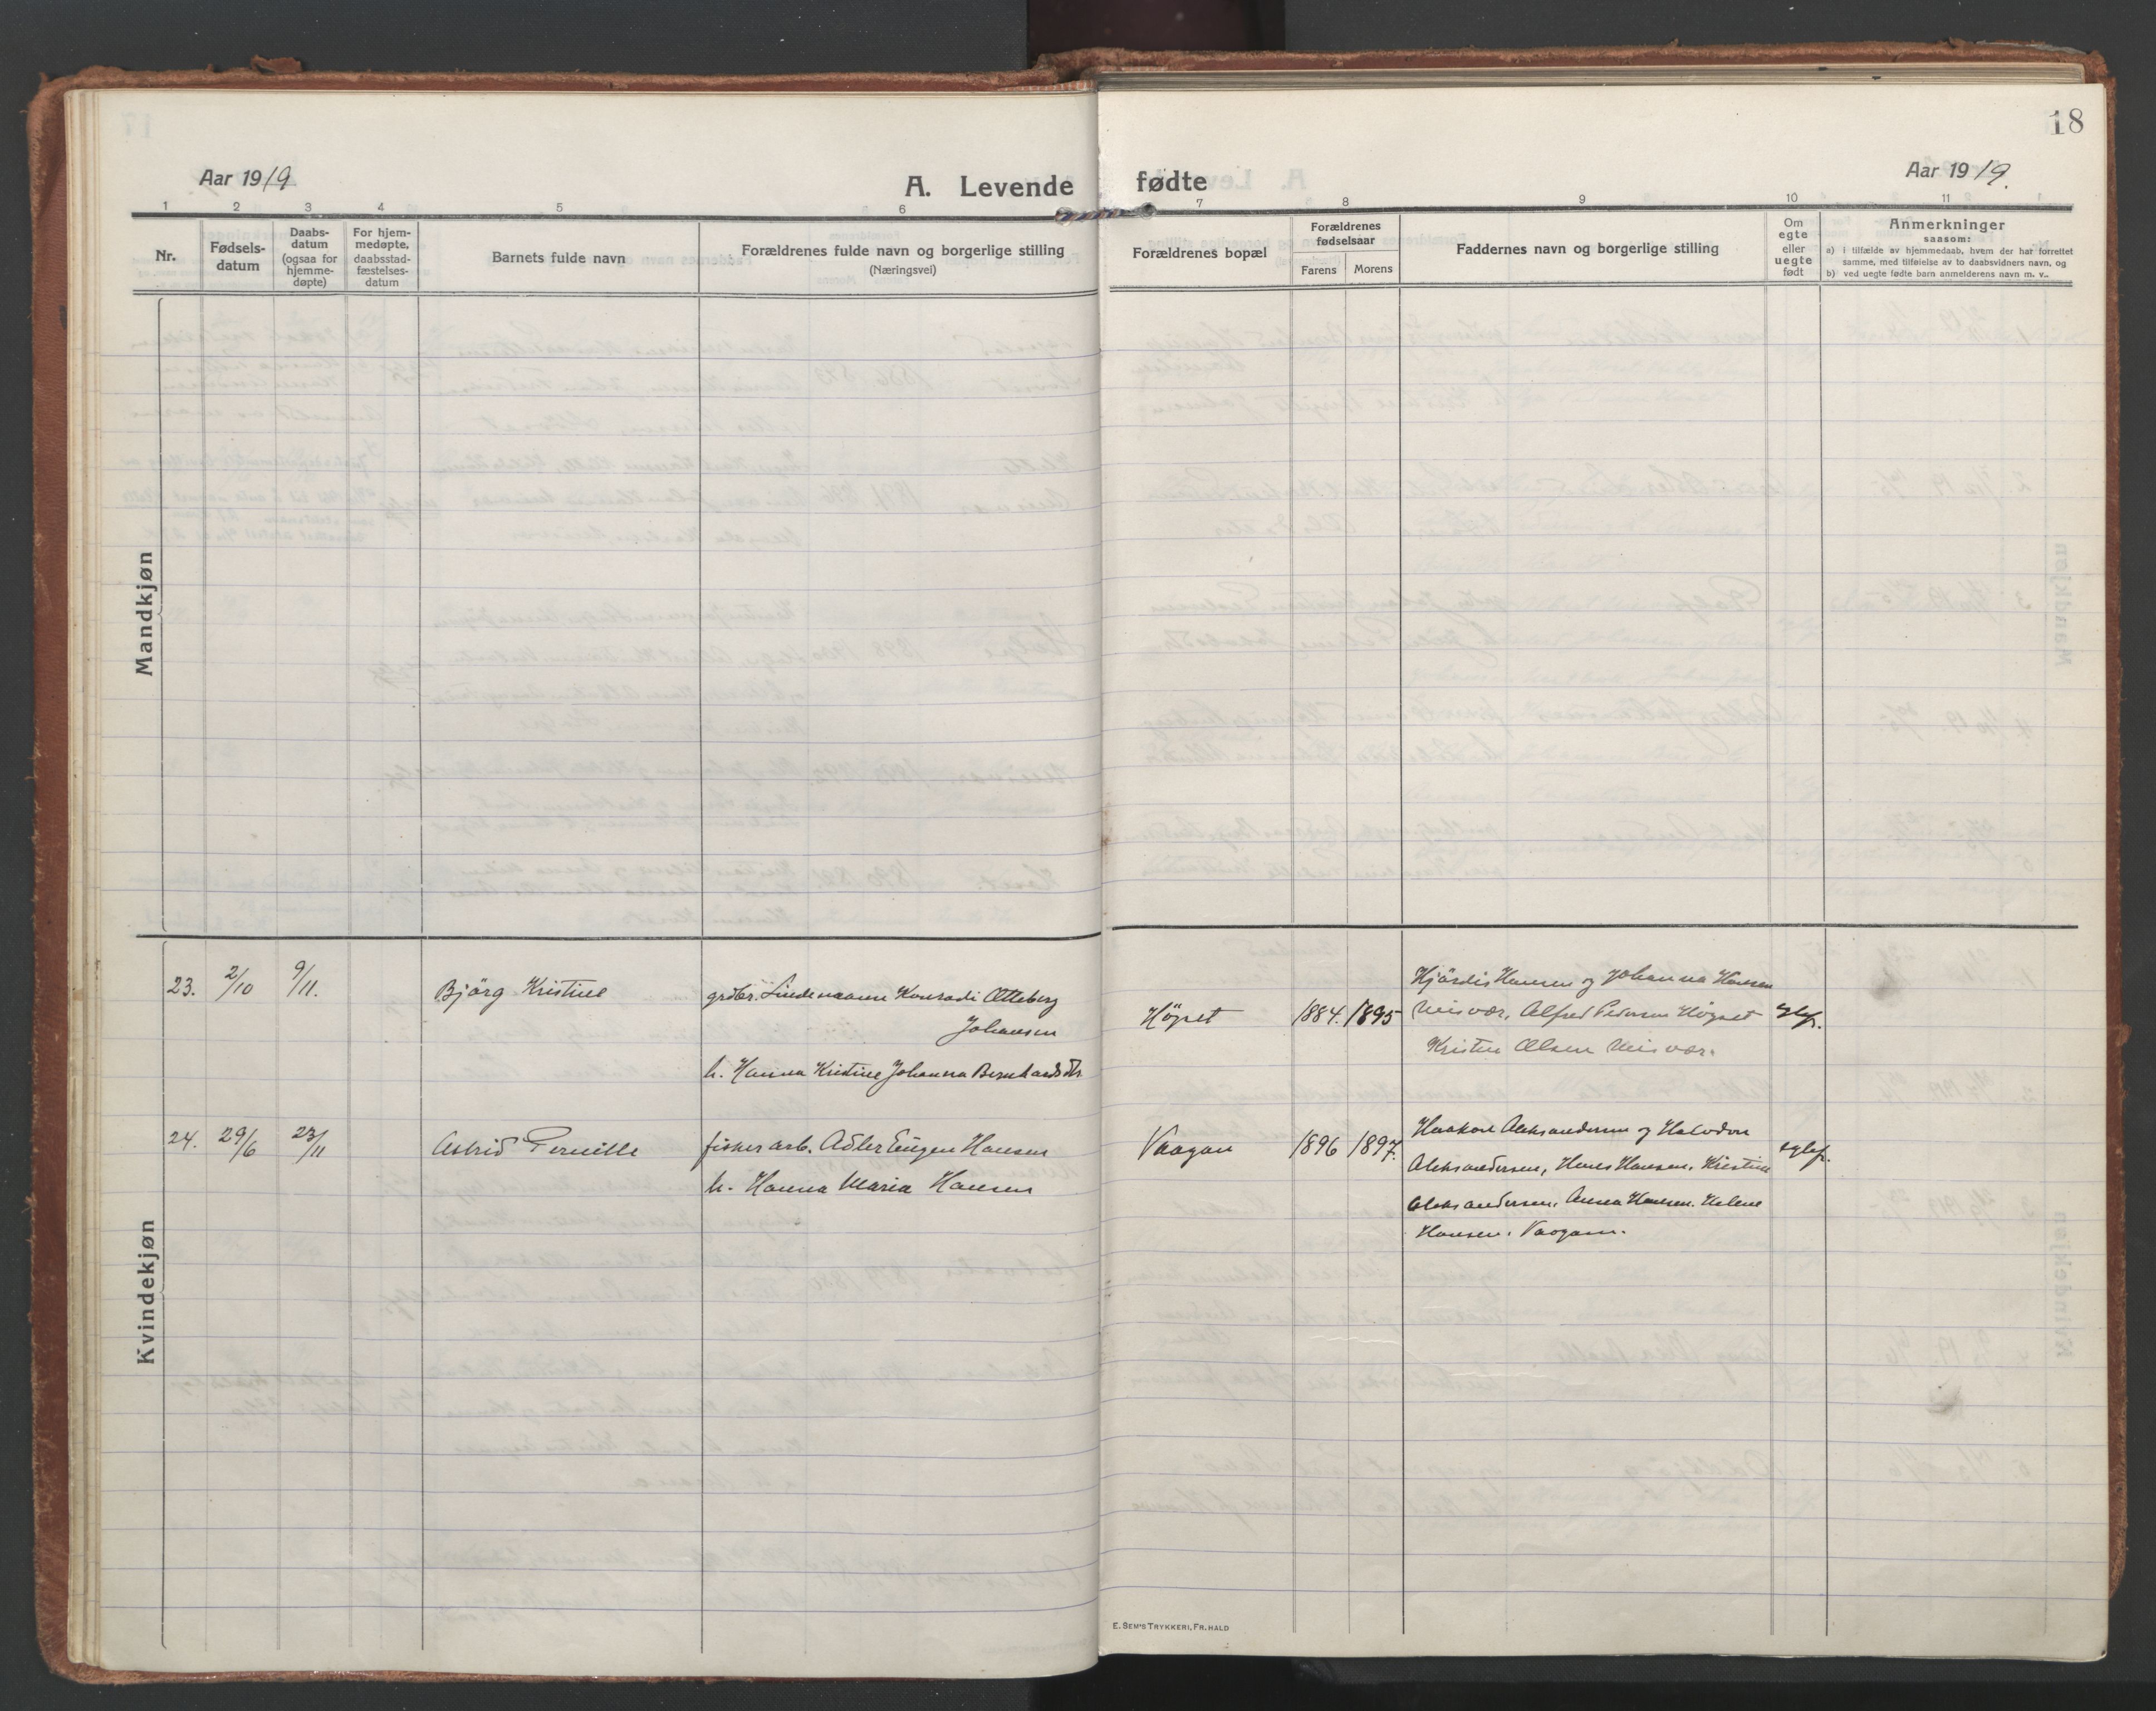 18
Aar 1919
A. Levende fødte
Aar 1919.
1 2 3 4 5 6 7 8 9 10 11
Nr.
Fødsels-
datum
Daabs-
datum
(ogsaa for
hjemme-
døpte)
For hjem-
medøpte,
daabsstad-
fæstelses-
datum
Barnets fulde navn
Forældrenes fulde navn og borgerlige stilling
(Næringsvei)
Forældrenes bopæl
Forældrenes
fødselsaar
Farens Morens
Faddernes navn og borgerlige stilling
Om
egte
eller
uegte
født
Anmerkninger
saasom:
a) i tilfælde av hjemmedaab, hvem der har forrettet
samme, med tilføielse av to daabsvidners navn, og
b) ved uegte fødte barn anmelderens navn m. v..
Mandkjøn
Kvindekjøn
23. 2/10 9/11. Bjärg Kristine
grdbr. Lindemann Konradi Olleberg
Johansen
h. Hanna Kristine Johanna Bernhardsdtr
Högset 1884. 1895
Hjärdis Hansen og Johanna Hansen
Misvær, Alfred Pedersen Högset
Kristen Olsen Misvær.
egtef.
24. 29/6 23/11 Astrid Pernille
fisker arb. Adler Eugen Hansen
h. Hanna Maria Hansen
Vaagan 1896 1897.
Haakon Aleksandersen og Halvdon
Aleksandersen, Hans Hansen, Kristine
Aleksandersen, Anna Hansen. Helene
Hansen. Vaagan.
egtef.
E. SEM'S TRYKKERI, FR. HALD